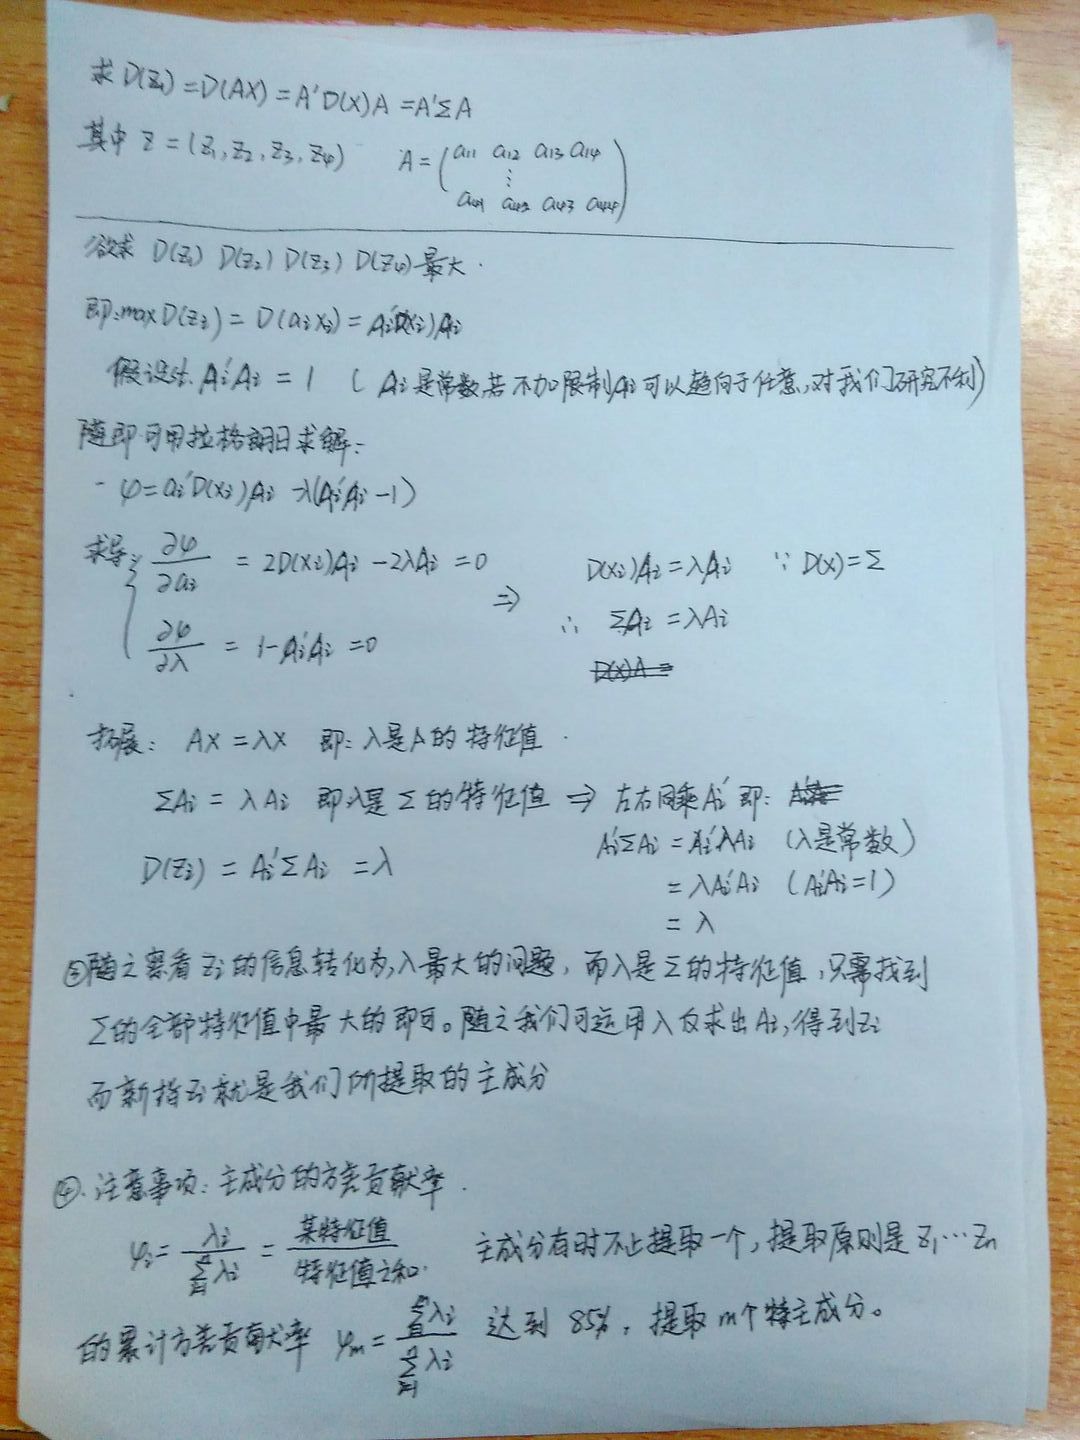 求 D(Z₁) = D(AX) = A'D(X)A = A'ΣA
其中 Z = (Z₁, Z₂, Z₃, Z₄) A = (a₁₁ a₁₂ a₁₃ a₁₄
⋮
a₄₁ a₄₂ a₄₃ a₄₄)
欲求 D(Z₁) D(Z₂) D(Z₃) D(Z₄) 最大.
即: max D(Zᵢ) = D(aᵢxᵢ) = Aᵢ'D(xᵢ)Aᵢ
假设 Aᵢ'Aᵢ = 1 ( Aᵢ是常数,若不加限制,Aᵢ可以趋向于任意,对我们研究不利)
随即可用拉格朗日求解:
φ = aᵢ'D(xᵢ)Aᵢ - λ(Aᵢ'Aᵢ - 1)
求导 ∂φ/∂aᵢ = 2D(Xᵢ)Aᵢ - 2λAᵢ = 0 ⇒ D(Xᵢ)Aᵢ = λAᵢ ∵ D(X) = Σ
∴ ΣAᵢ = λAᵢ
∂φ/∂λ = 1 - Aᵢ'Aᵢ = 0
拓展: AX = λX 即: λ是A的特征值.
ΣAᵢ = λAᵢ 即λ是Σ的特征值 ⇒ 左右同乘Aᵢ' 即:
Aᵢ'ΣAᵢ = Aᵢ'λAᵢ (λ是常数)
D(Zᵢ) = Aᵢ'ΣAᵢ = λ
= λAᵢ'Aᵢ (Aᵢ'Aᵢ=1)
= λ
③随之察看Zᵢ的信息转化为,λ最大的问题,而λ是Σ的特征值,只需找到
Σ的全部特征值中最大的即可。随之我们可运用λ反求出Aᵢ,得到Zᵢ
而新指Zᵢ就是我们所提取的主成分
④.注意事项:主成分的方差贡献率.
φᵢ = λᵢ/Σλᵢ = 某特征值/特征值之和. 主成分有时不止提取一个,提取原则是Z₁…Zₙ
的累计方差贡献率 φₘ = Σλᵢ/Σλᵢ 达到85%,提取m个特主成分。